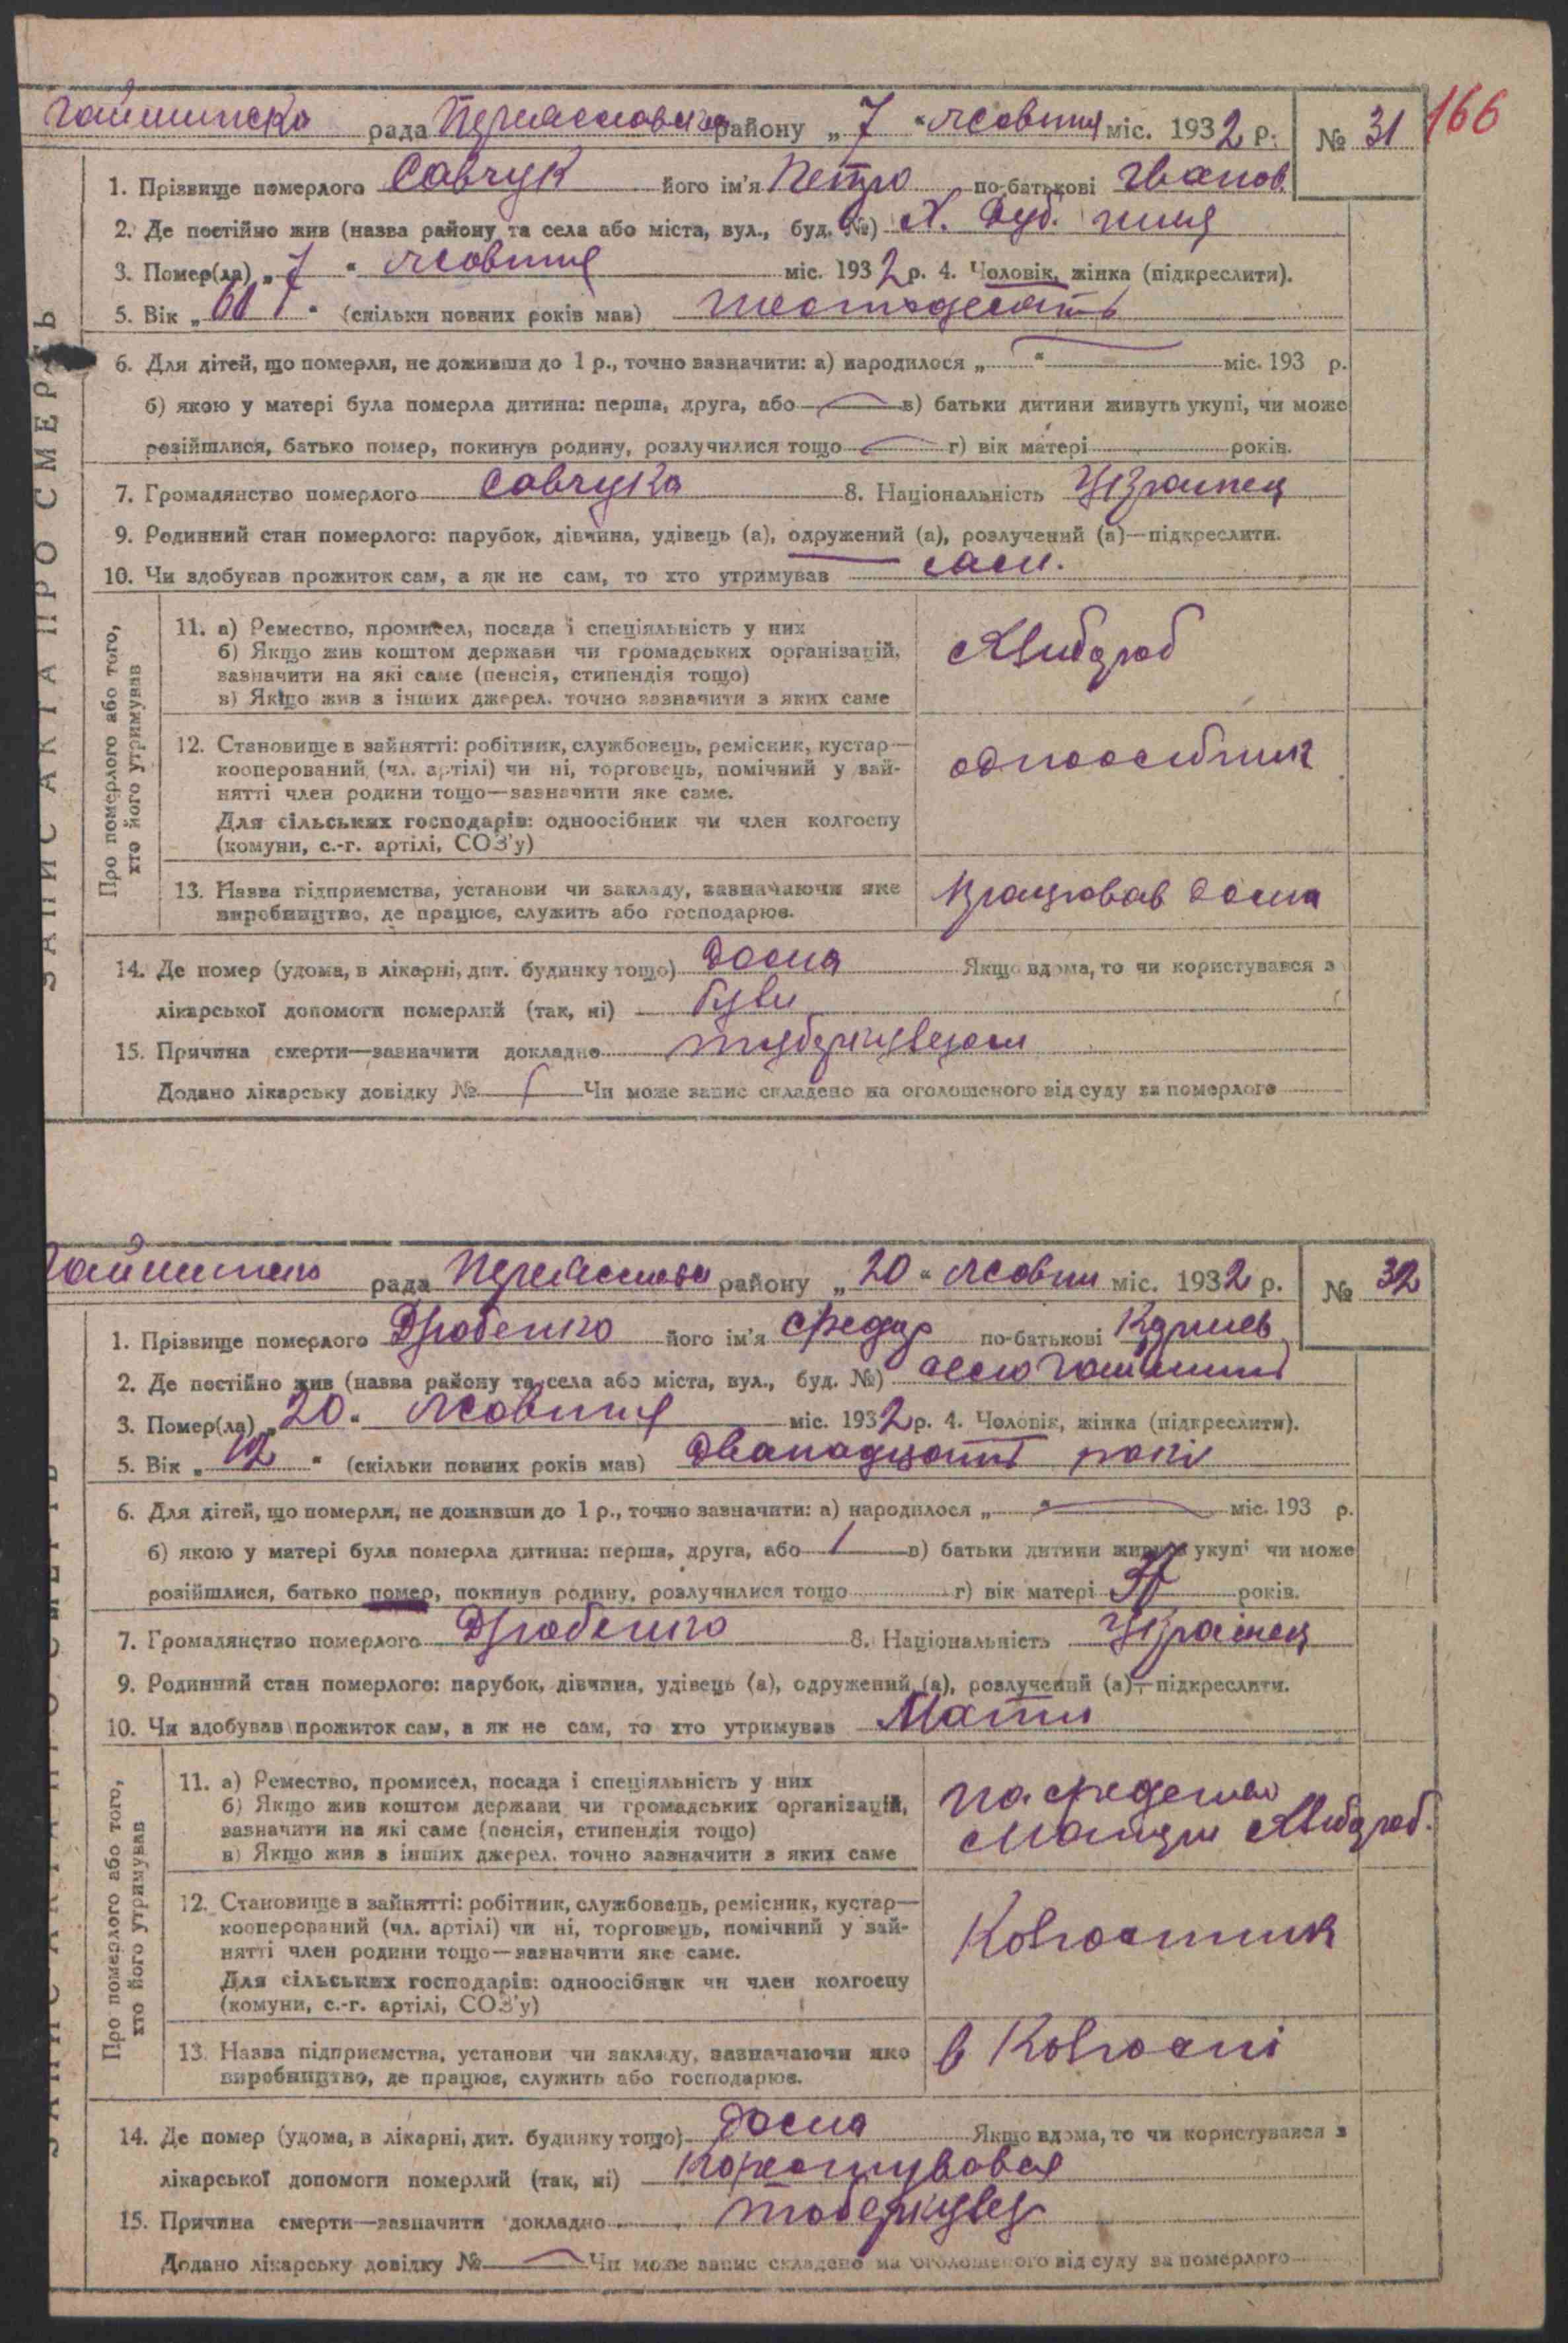 166
Гайшинска рада Переяславског району „7“ жовтня міс. 1932 р. № 31
1. Прізвище померлого Савчук його ім'я Петро по-батькові Іванов
2. Де постійно жив (назва району та села або міста, вул., буд. №) Х.
3. Помер(ла) „7“ жовтня міс. 1932 р. 4. Чоловік, жінка (підкреслити).
5. Вік „60“ (скільки повних років мав) шестдесять
6. Для дітей, що померли, не доживши до 1 р., точно зазначити: а) народилося „ “ міс. 193 р.
б) якою у матері була померла дитина: перша, друга, або в) батьки дитини живуть укупі, чи може
розійшлися, батько помер, покинув родину, розлучилися тощо г) вік матері років.
7. Громадянство померлого Савчука 8. Національність Українец
9. Родинний стан померлого: парубок, дівчина, удівець (а), одружений (а), розлучений (а)—підкреслити.
10. Чи здобував прожиток сам, а як не сам, то хто утримував сам.
ЗАПИС АКТА ПРО СМЕРТЬ
Про померлого або того, хто його утримував
11. а) Ремество, промисел, посада і спеціяльність у них
б) Якщо жив коштом держави чи громадських організацій,
зазначити на які саме (пенсія, стипендія тощо)
в) Якщо жив з інших джерел, точно зазначити з яких саме
Хлібороб
12. Становище в зайнятті: робітник, службовець, ремісник, кустар—
кооперований (чл. артілі) чи ні, торговець, помічний у зай-
нятті член родини тощо—зазначити яке саме.
Для сільських господарів: одноосібник чи член колгоспу
(комуни, с.-г. артілі, СОЗ'у)
одноосібник
13. Назва підприємства, установи чи закладу, зазначаючи яке
виробництво, де працює, служить або господарює.
працював дома
14. Де помер (удома, в лікарні, дит. будинку тощо) дома Якщо вдома, то чи користувався з
лікарської допомоги померлий (так, ні)
15. Причина смерти—зазначити докладно туберкулезом
Додано лікарську довідку № Чи може запис складено на оголошеного від суду за померлого
Гайшинська рада Переяславськ району „20“ жовтн міс. 1932 р. № 32
1. Прізвище померлого Дробенко його ім'я Федор по-батькові Корнієв
2. Де постійно жив (назва району та села або міста, вул., буд. №) село Гайшин
3. Помер(ла) „20“ жовтня міс. 1932 р. 4. Чоловік, жінка (підкреслити).
5. Вік „12“ (скільки повних років мав) дванадцять рокі
6. Для дітей, що померли, не доживши до 1 р., точно зазначити: а) народилося „ “ міс. 193 р.
б) якою у матері була померла дитина: перша, друга, або в) батьки дитини живуть укупі чи може
розійшлися, батько помер, покинув родину, розлучилися тощо г) вік матері років.
7. Громадянство померлого Дробенко 8. Національність Українец
9. Родинний стан померлого: парубок, дівчина, удівець (а), одружений (а), розлучений (а)—підкреслити.
10. Чи здобував прожиток сам, а як не сам, то хто утримував Мати
ЗАПИС АКТА ПРО СМЕРТЬ
Про померлого або того, хто його утримував
11. а) Ремество, промисел, посада і спеціяльність у них
б) Якщо жив коштом держави чи громадських організацій,
зазначити на які саме (пенсія, стипендія тощо)
в) Якщо жив з інших джерел, точно зазначити з яких саме
на
Хлібороб.
12. Становище в зайнятті: робітник, службовець, ремісник, кустар—
кооперований (чл. артілі) чи ні, торговець, помічний у зай-
нятті член родини тощо—зазначити яке саме.
Для сільських господарів: одноосібник чи член колгоспу
(комуни, с.-г. артілі, СОЗ'у)
Колгоспник
13. Назва підприємства, установи чи закладу, зазначаючи яке
виробництво, де працює, служить або господарює.
в Колгоспі
14. Де помер (удома, в лікарні, дит. будинку тощо) дома Якщо вдома, то чи користувався з
лікарської допомоги померлий (так, ні) Користувався
15. Причина смерти—зазначити докладно тоберкулез
Додано лікарську довідку № Чи може запис складено на оголошеного від суду за померлого